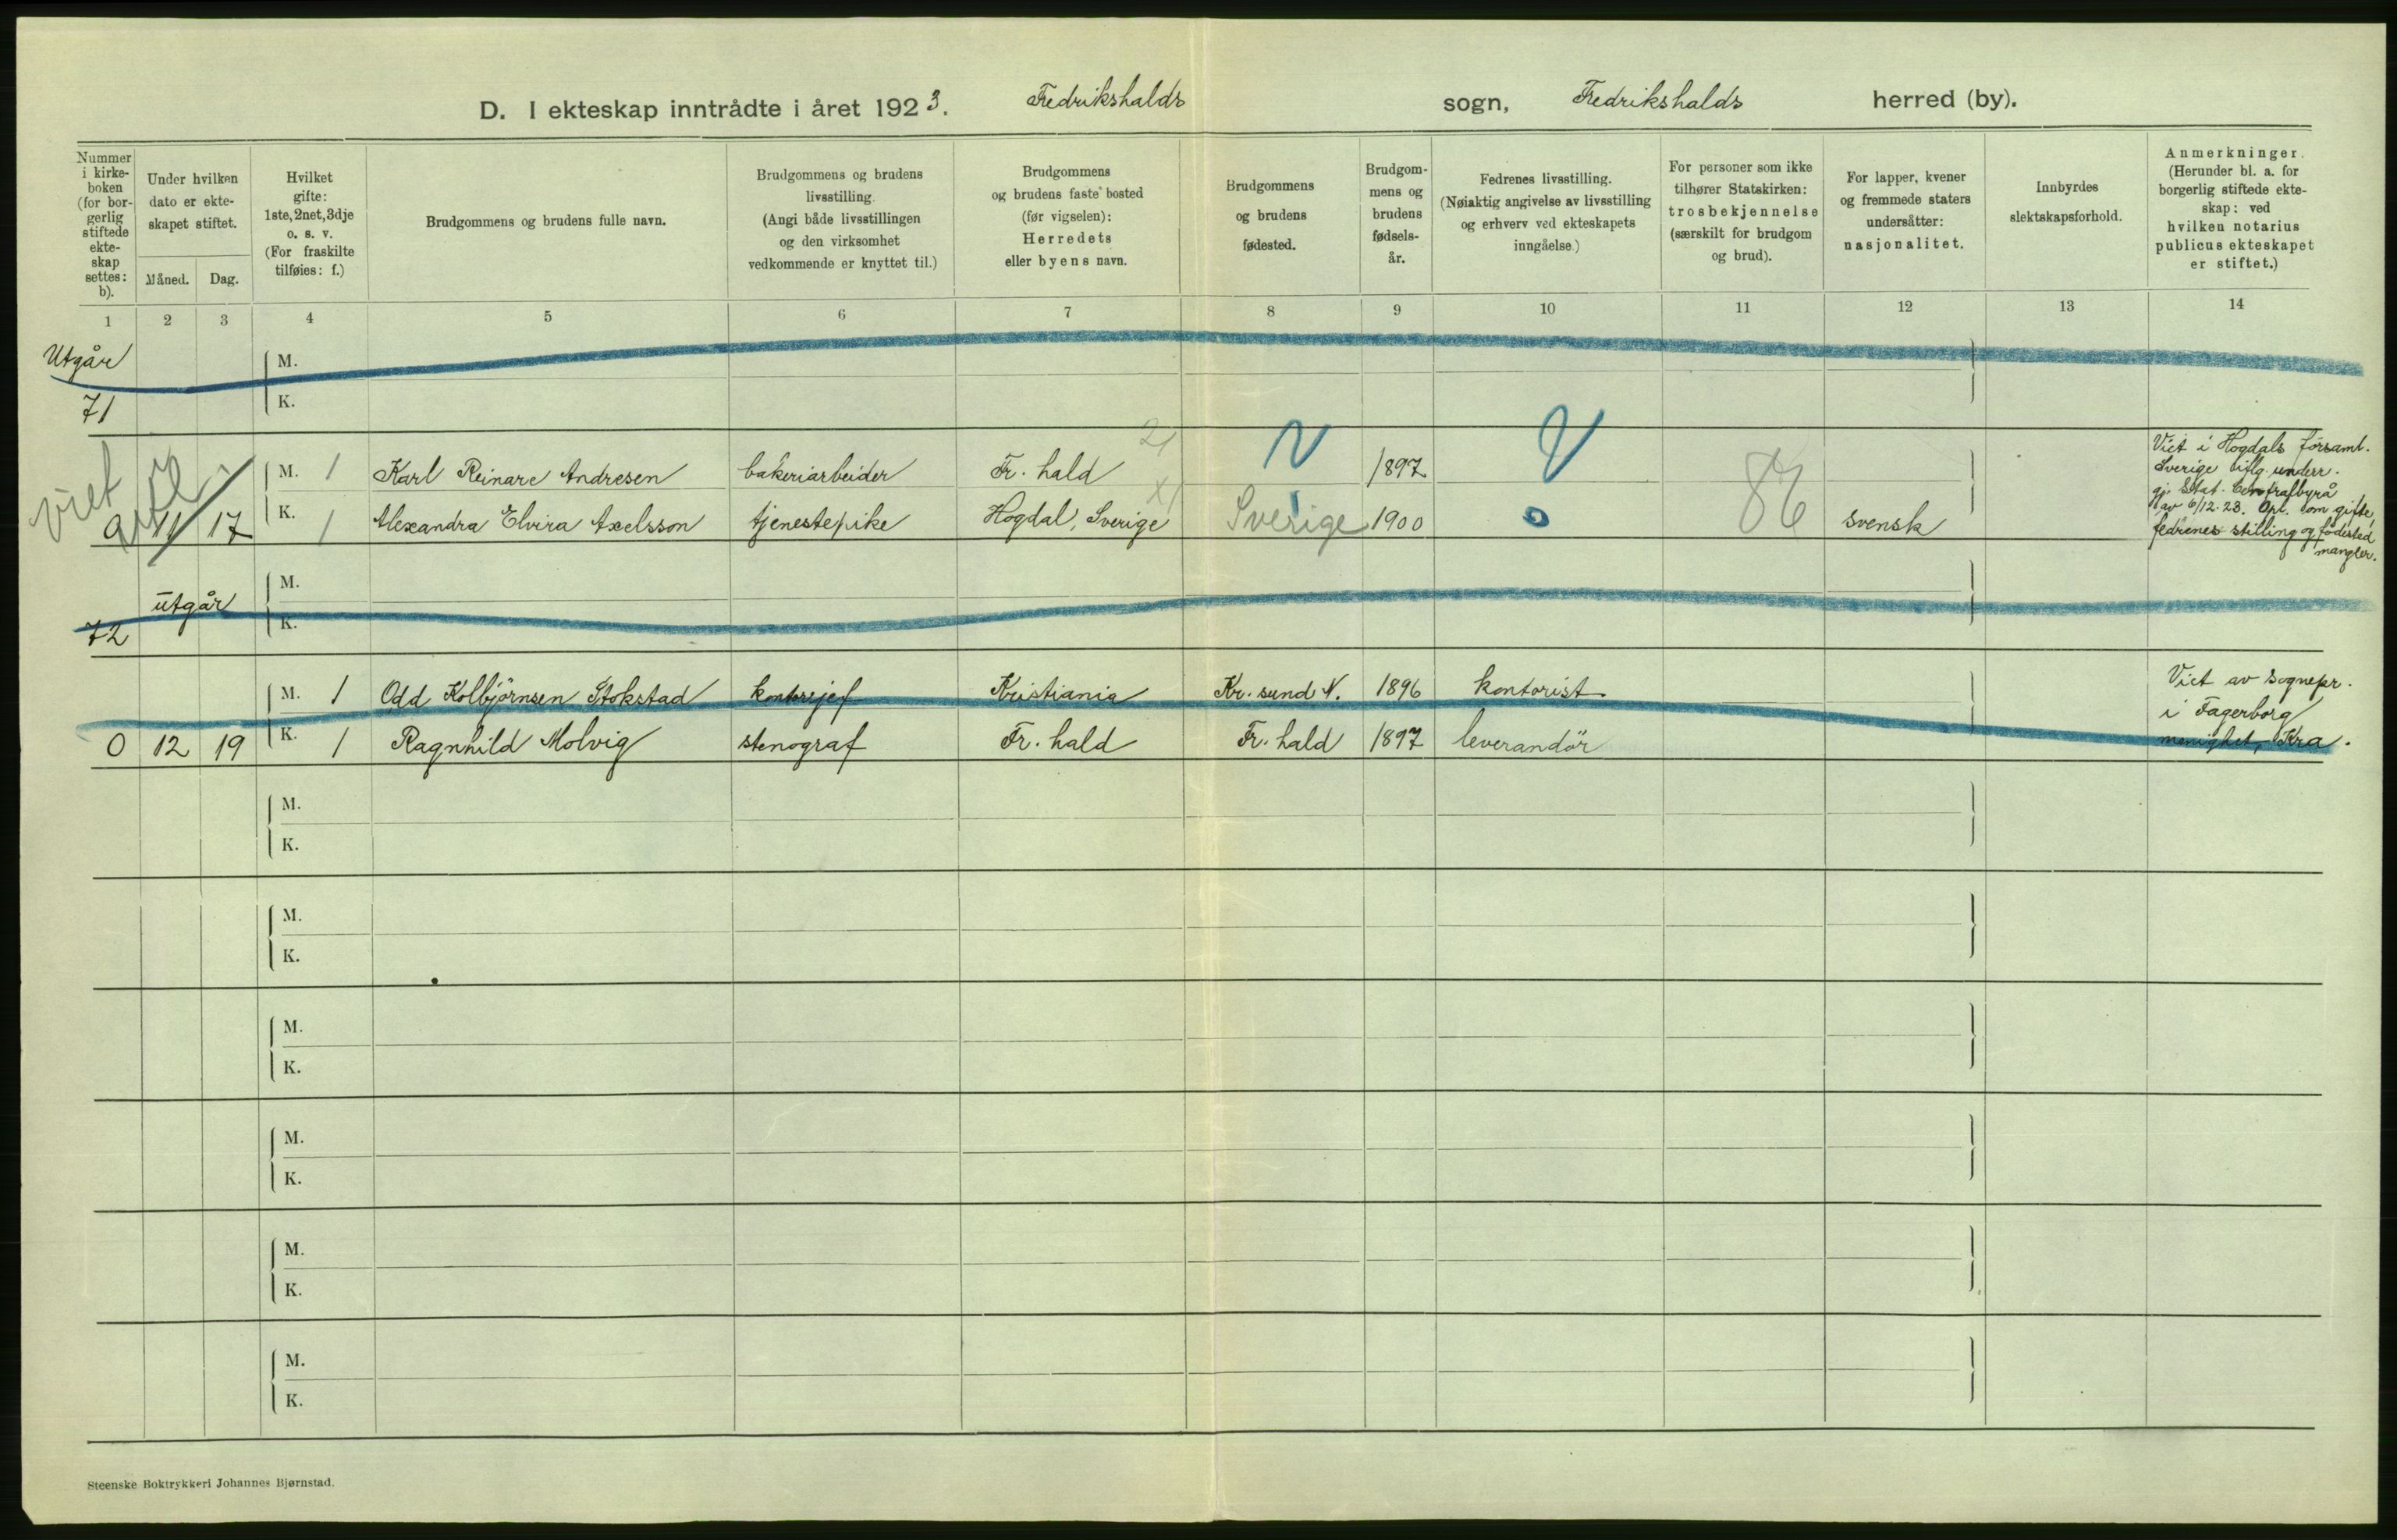 D. I ekteskap inntrådte i året 1923. Fredrikshalds sogn, Fredrikshalds herred (by).
Nummer
i kirke-
boken
(for bor-
gerlig
stiftede
ekte-
skap
settes:
b).
Under hvilken
dato er ekte-
skapet stiftet.
Måned. Dag.
Hvilket
gifte:
1ste, 2net, 3dje
o. s. v.
(For fraskilte
tilføies: f.)
Brudgommens og brudens fulle navn.
Brudgommens og brudens
livsstilling.
(Angi både livsstillingen
og den virksomhet
vedkommende er knyttet til.)
Brudgommens
og brudens faste bosted
(før vigselen):
Herredets
eller byens navn.
Brudgommens
og brudens
fødested.
Brudgom-
mens og
brudens
fødsels-
år.
Fedrenes livsstilling.
(Nøiaktig angivelse av livsstilling
og erhverv ved ekteskapets
inngåelse.)
For personer som ikke
tilhører Statskirken:
trosbekjennelse
(særskilt for brudgom
og brud).
For lapper, kvener
og fremmede staters
undersåtter:
nasjonalitet.
Innbyrdes
slektskapsforhold.
Anmerkninger.
(Herunder bl. a. for
borgerlig stiftede ekte-
skap: ved
hvilken notarius
publicus ekteskapet
er stiftet.)
1 2 3 4 5 6 7 8 9 10 11 12 13 14
Utgår
M.
K.
71
viet
M. 1 Karl Reinare Andresen bakeriarbeider Fr. hald 21 1897
11 17 K. 1 Alexandra Elvira Axelsson tjenestepike Hogdal, Sverige X1 Sverige 1900 0 86 svensk
Viet i Hogdals församl.
Sverige iflg. underr.
gj. Stat. Centralbyrå
av 6/12-23. Opl. om gifte,
fedrenes stilling og fødested
mangler.
utgår
M.
K.
72
M. 1 Odd Kolbjörnsen Stokstad kontorsjef Kristiania Kr. sund N. 1896 kontorist
0 12 19 K. 1 Ragnhild Molvig stenograf Fr. hald Fr. hald 1897 leverandör
Viet av sognepr.
i Fagerborg
menighet, Kra.
M.
K.
M.
K.
M.
K.
M.
K.
M.
K.
M.
K.
Steenske Boktrykkeri Johannes Bjørnstad.